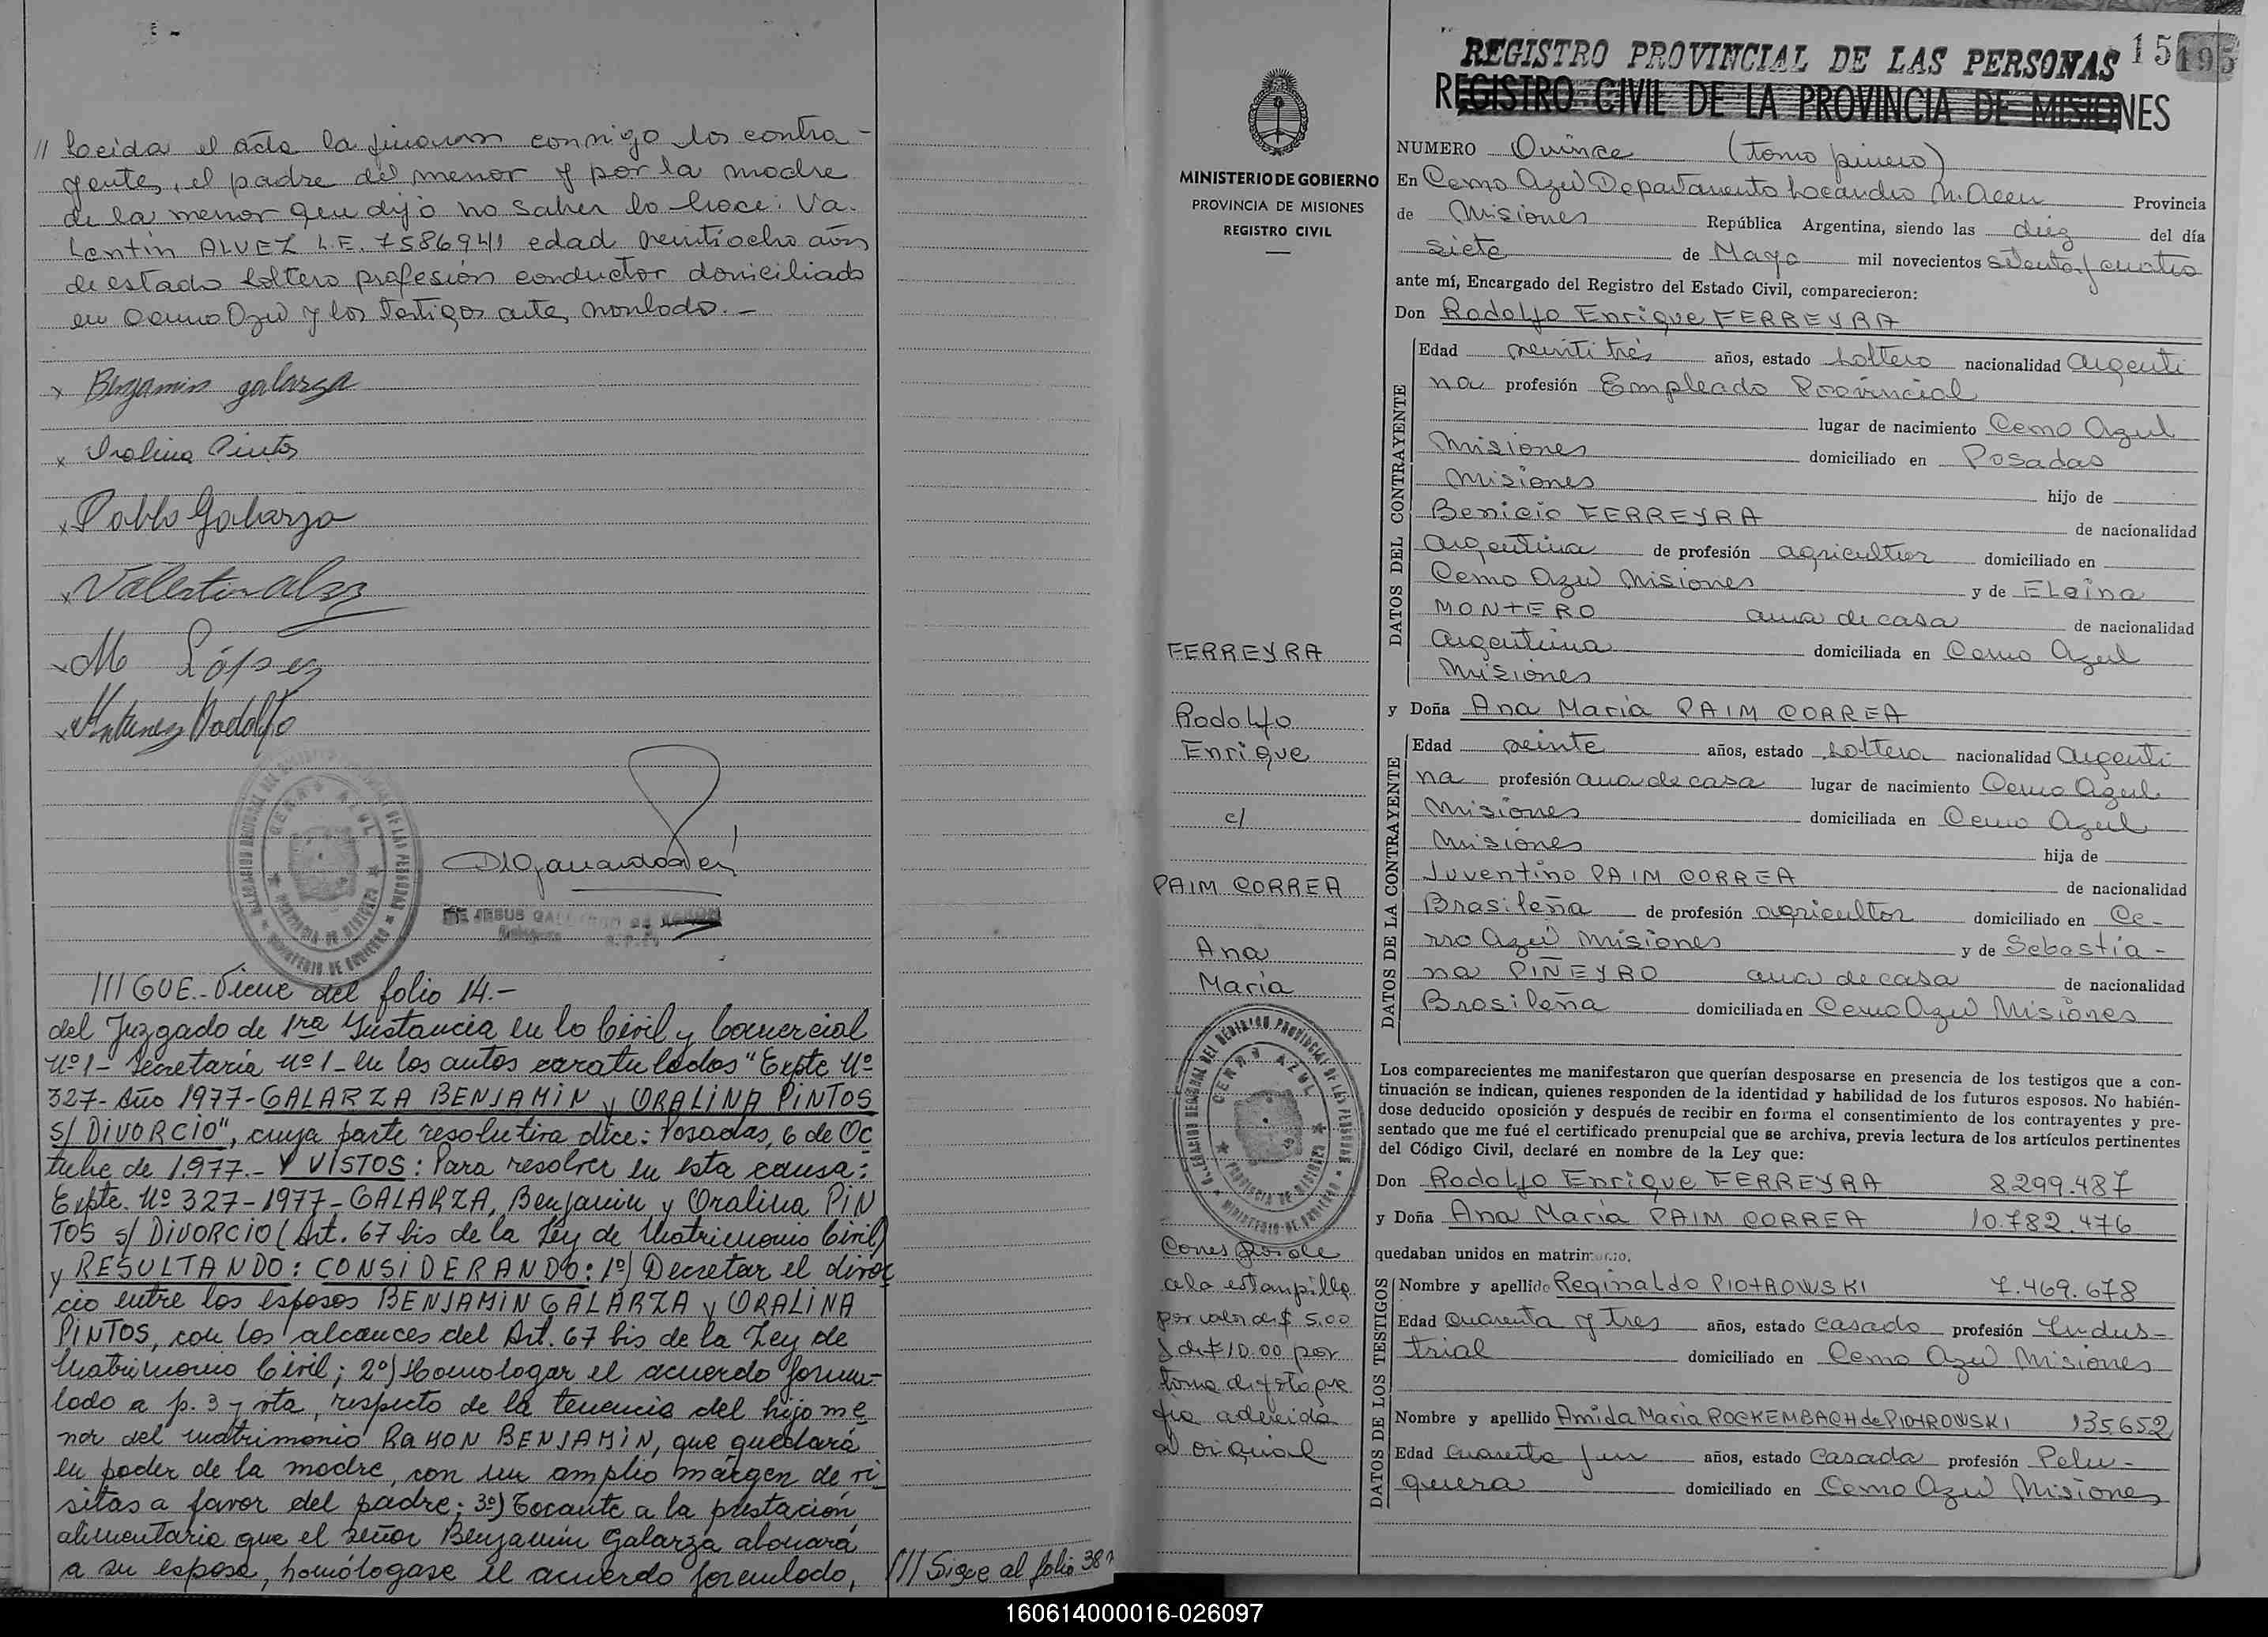 // Leida el acta la firman conmigo los contra-
yentes, el padre del menor y por la madre
de la menor que dijo no saber lo hace: Va-
lentín ALVEZ L.E. 7586941 edad veintiocho años
de estado soltero profesión conductor domiciliado
en Cerro Azul y los testigos ante nonbrado.-
x Benjamin galarza
x Oralina Pintos
x Pablo Galarza
x Valentin Alvez
x M López
x Antunez Rodolfo
CERRO AZUL
PROVINCIA DE MISIONES
MINISTERIO DE GOBIERNO
DE JESUS
///GUE.- Viene del folio 14.-
del Juzgado de 1ra Instancia en lo Civil y Comercial
Nº 1 - Secretaría Nº 1 - en los autos caratulados "Expte Nº
327- Año 1977- GALARZA BENJAMIN y ORALINA PINTOS
S/ DIVORCIO", cuya parte resolutiva dice: Posadas, 6 de Oc
tubre de 1.977.- Y VISTOS: Para resolver en esta causa:
Expte. Nº 327-1977- GALARZA, Benjamin y Oralina PIN
TOS s/ DIVORCIO (Art. 67 bis de la Ley de Matrimonio Civil)
y RESULTANDO: CONSIDERANDO: 1º) Decretar el divor
cio entre los esposos BENJAMIN GALARZA y ORALINA
PINTOS, con los alcances del Art. 67 bis de la Ley de
Matrimonio Civil; 2º) Homologar el acuerdo formu-
lado a p. 3 y vta, respecto de la tenencia del hijo me
nor del matrimonio RAMON BENJAMIN, que quedará
en poder de la madre, con un amplio márgen de vi-
sitas a favor del padre; 3º) Tocante a la prestación
alimentaria que el señor Benjamín Galarza abonará
a su esposa, homólogase el acuerdo formulado,
/// Sigue al folio 38
REGISTRO PROVINCIAL DE LAS PERSONAS 15 195
REGISTRO CIVIL DE LA PROVINCIA DE MISIONES
MINISTERIO DE GOBIERNO
PROVINCIA DE MISIONES
REGISTRO CIVIL
FERREYRA
Rodolfo
Enrique
c/
PAIM CORREA
Ana
María
CERRO AZUL
PROVINCIA DE MISIONES
MINISTERIO DE GOBIERNO
Corresponde
a la estampilla
por valor de $ 5.00
y de $ 10.00 por
toma de foto que
fue adherida
al original
NUMERO Quince (tomo primero)
En Cerro Azul Departamento Leandro N. Alem Provincia
de Misiones República Argentina, siendo las diez del día
siete de Mayo mil novecientos setenta y cuatro
ante mí, Encargado del Registro del Estado Civil, comparecieron:
Don Rodolfo Enrique FERREYRA
DATOS DEL CONTRAYENTE
Edad veinti trés años, estado soltero nacionalidad Argenti
na profesión Empleado Provincial
lugar de nacimiento Cerro Azul
Misiones domiciliado en Posadas
Misiones hijo de
Benicio FERREYRA de nacionalidad
Argentina de profesión agricultor domiciliado en
Cerro Azul Misiones y de Elaina
MONTERO ama de casa de nacionalidad
Argentina domiciliada en Cerro Azul
Misiones
y Doña Ana María PAIM CORREA
DATOS DE LA CONTRAYENTE
Edad veinte años, estado soltera nacionalidad Argenti
na profesión ama de casa lugar de nacimiento Cerro Azul
Misiones domiciliada en Cerro Azul
Misiones hija de
Juventino PAIM CORREA de nacionalidad
Brasileña de profesión agricultor domiciliado en Ce-
rro Azul Misiones y de Sebastia-
na PIÑEYRO ama de casa de nacionalidad
Brasileña domiciliada en Cerro Azul Misiones
Los comparecientes me manifestaron que querían desposarse en presencia de los testigos que a con-
tinuación se indican, quienes responden de la identidad y habilidad de los futuros esposos. No habién-
dose deducido oposición y después de recibir en forma el consentimiento de los contrayentes y pre-
sentado que me fué el certificado prenupcial que se archiva, previa lectura de los artículos pertinentes
del Código Civil, declaré en nombre de la Ley que:
Don Rodolfo Enrique FERREYRA 8299.487
y Doña Ana María PAIM CORREA 10.782.476
quedaban unidos en matrimonio.
DATOS DE LOS TESTIGOS
Nombre y apellido Reginaldo PIOTROWSKI 7.469.678
Edad cuarenta y tres años, estado casado profesión Indus-
trial domiciliado en Cerro Azul Misiones
Nombre y apellido Amida María ROCKEMBACH de PIOTROWSKI 135.652
Edad cuarenta y un años, estado casada profesión Pelu-
quera domiciliado en Cerro Azul Misiones
160614000016-026097